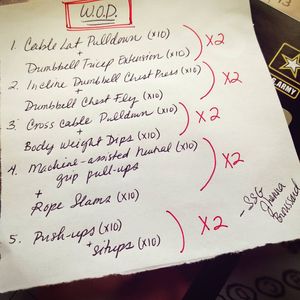 W.O.D.
1. Cable Lat Pulldown (x10)
+
Dumbbell Tricep Extension (x10)
x2
2. Incline Dumbbell Chest Press (x10)
+
Dumbbell Chest Fly (x10)
x2
3. Cross Cable Pulldown (x10)
+
Body Weight Dips (x10)
x2
4. Machine-assisted Neutral (x10)
grip pull-ups
+
Rope Slams (x10)
x2
5. Push-ups (x10)
+ situps (x10)
x2
- SSG
ARMY